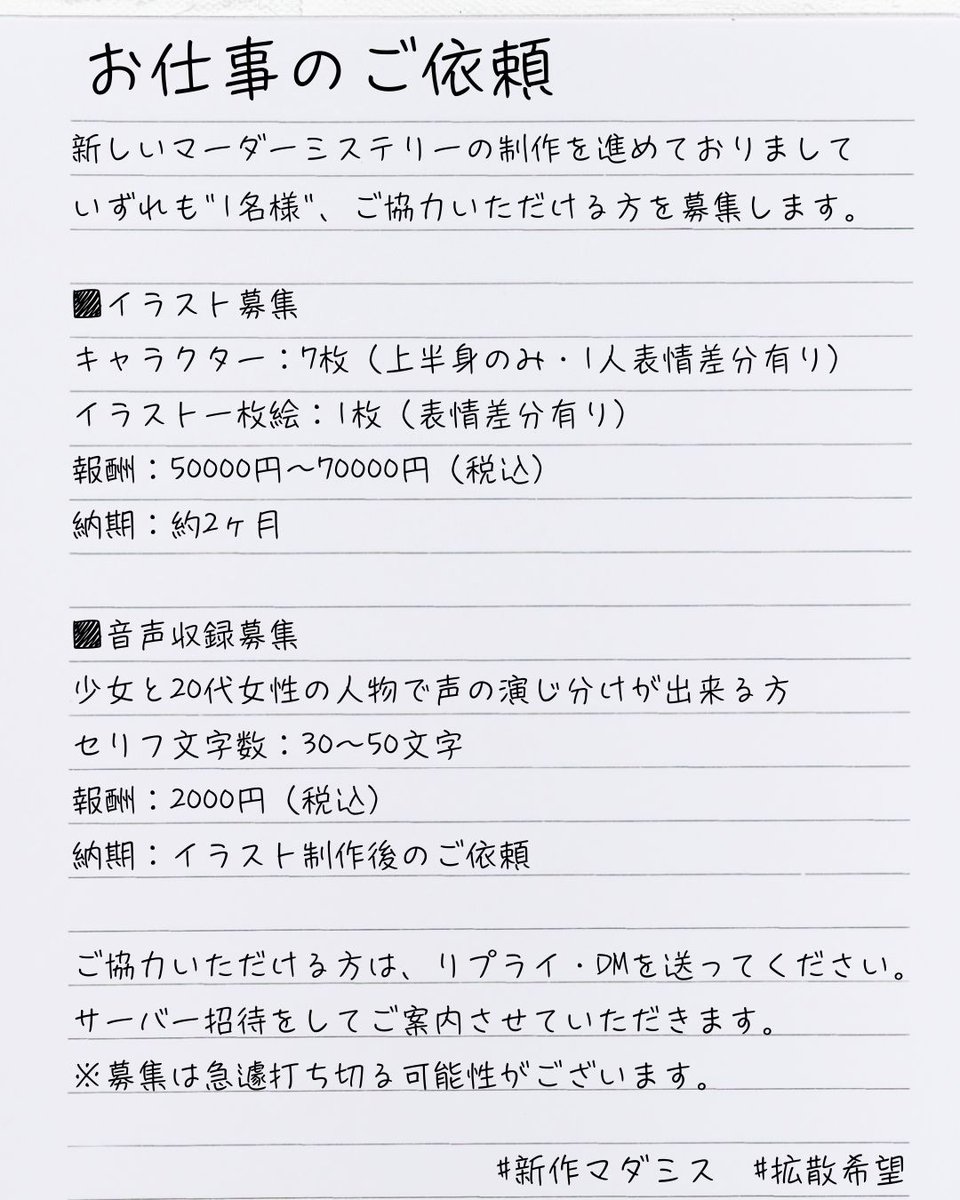 お仕事のご依頼
新しいマーダーミステリーの制作を進めておりまして
いずれも"1名様"、ご協力いただける方を募集します。
■イラスト募集
キャラクター：7枚（上半身のみ・1人表情差分有り）
イラスト一枚絵：1枚（表情差分有り）
報酬：50000円～70000円（税込）
納期：約2ヶ月
■音声収録募集
少女と20代女性の人物で声の演じ分けが出来る方
セリフ文字数：30～50文字
報酬：2000円（税込）
納期：イラスト制作後のご依頼
ご協力いただける方は、リプライ・DMを送ってください。
サーバー招待をしてご案内させていただきます。
※募集は急遽打ち切る可能性がございます。
#新作マダミス　#拡散希望